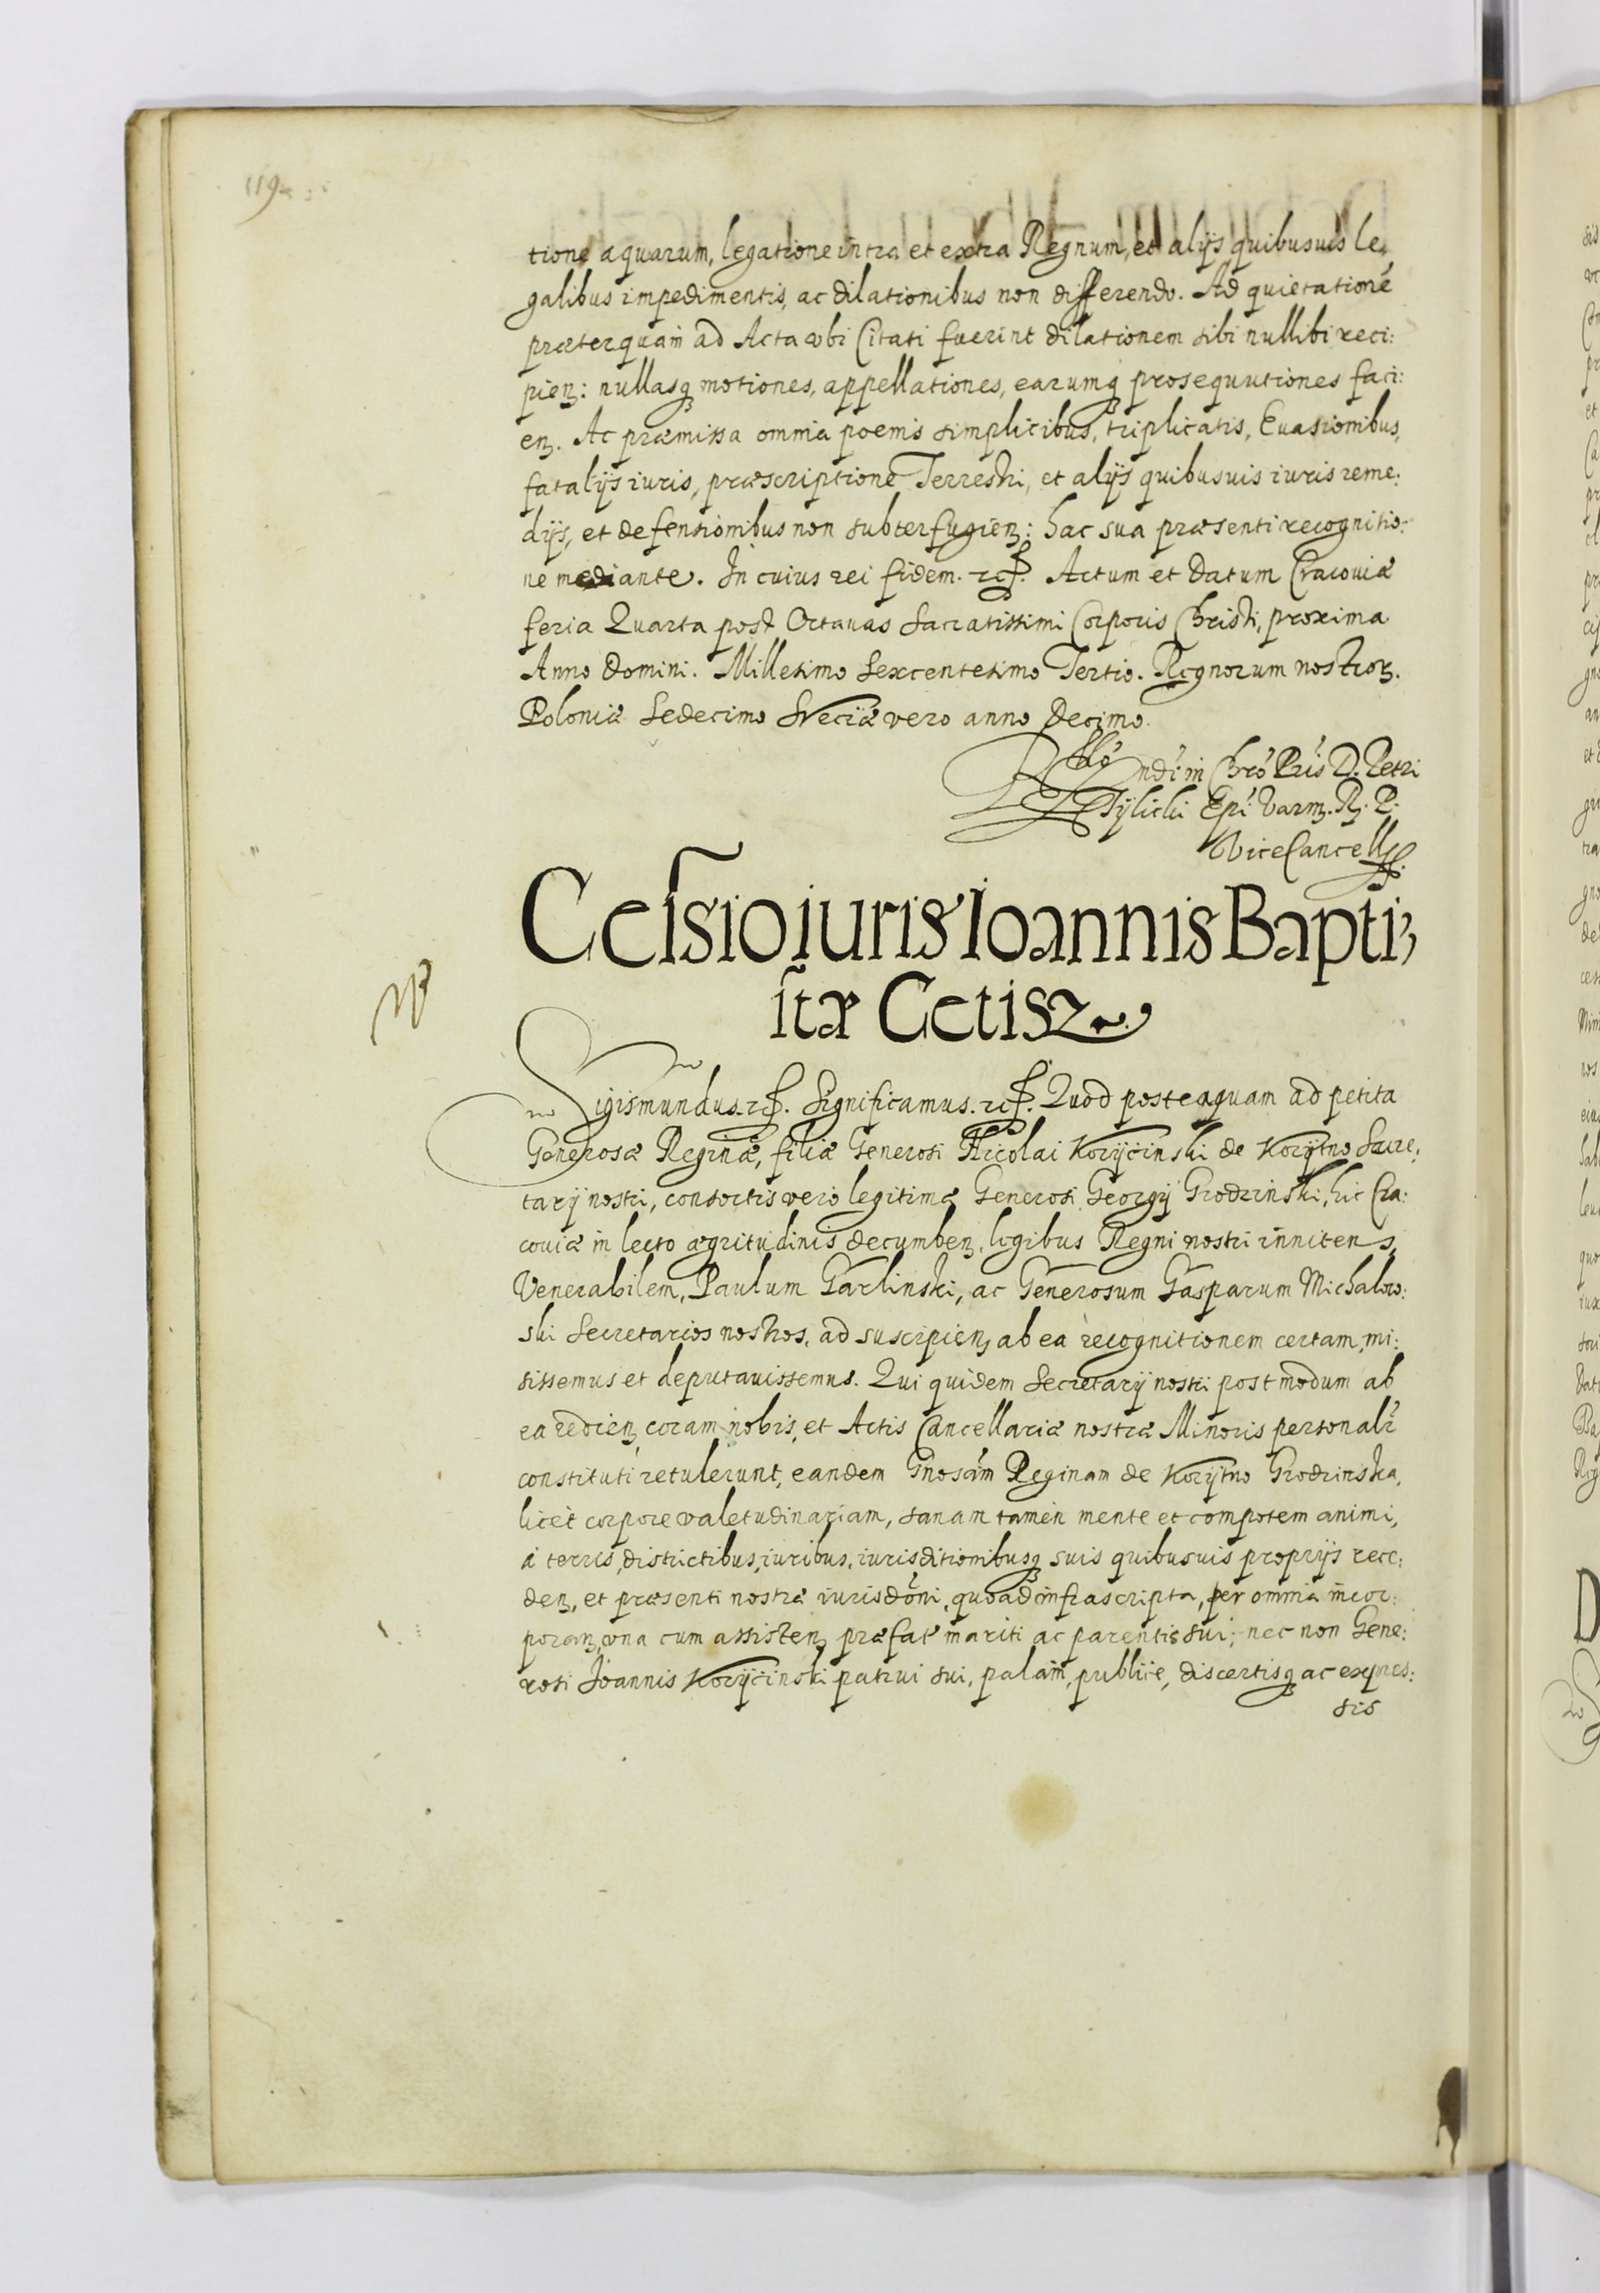 119
tione aquarum, legatione intra et extra Regnum, et alijs quibusuis le,
galibus impedimentis, ac dilationibus non differendo. Ad quietationē
præterquam ad Acta vbi Citati fuerint dilationem sibi nullibi reci:
pienȝ: nullasqȝ motiones, appellationes, earumqȝ prosequutiones faci:
enȝ. Ac præmissa omnia poenis simplicibus, triplicatis, Euasionibus,
fatalijs iuris, præscriptione Terrestri, et alijs quibusuis iuris reme:
dijs, et defensionibus non subterfugienȝ: hac sua præsenti recognitio:
ne mediante. In cuius rei fidem. etc. Actum et Datum Cracouiæ
feria Quarta post Octauas Sacratissimi Corporis Christi, proxima
Anno Domini. Millesimo Sexcentesimo Tertio. Regnorum nostrorȝ.
Poloniæ Sedecimo Sveciæ vero anno Decimo.
Rllō ndi in Chrō Pris D. Petri
Tÿlicki Epi Varmȝ. R. P.
ViceCancell
Celsio iuris Ioannis Bapti,
stæ Cetis
Sigismundus. etc. Significamus. etc. Quod posteaquam ad petita
Generosæ Reginæ, filiæ Generosi Nicolai Korÿcinski de Korÿtno Secre:
tarij nostri, consortis vero legitimæ Generosi Georgij Grodzinski, hic Cra:
couiæ in lecto ægritudinis decumbenȝ, legibus Regni nostri innitens,
Venerabilem, Paulum Garlinski, ac Generosum Gasparum Michalow:
ski Secretarios nostros, ad suscipienȝ ab ea recognitionem certam, mi:
sissemus et deputauissemus. Qui quidem Secretarij nostri postmodum ab
ea redienȝ, coram nobis, et Actis Cancellariæ nostræ Minoris personalr̄
constituti retulerunt, eandem Gnosam Reginam de Korÿtno Grodzinska,
licet corpore valetudinariam, sanam tamen mente et compotem animi,
à terris, districtibus, iuribus, iurisditionibusqȝ suis quibusuis proprijs rece:
denȝ, et præsenti nostræ iurisdōni, quoad infrascripta, per omnia incor:
poranȝ, vna cum assistenȝ præfat mariti ac parentis sui, nec non Gene:
rosi Joannis Korÿcinski patrui sui, palam, publice, disertisqȝ ac expres:
sis